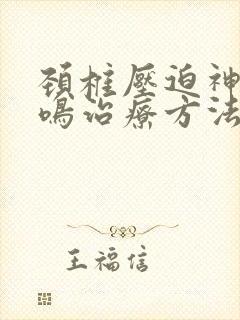 頚椎壓迫神
鳴治療方法
王福信